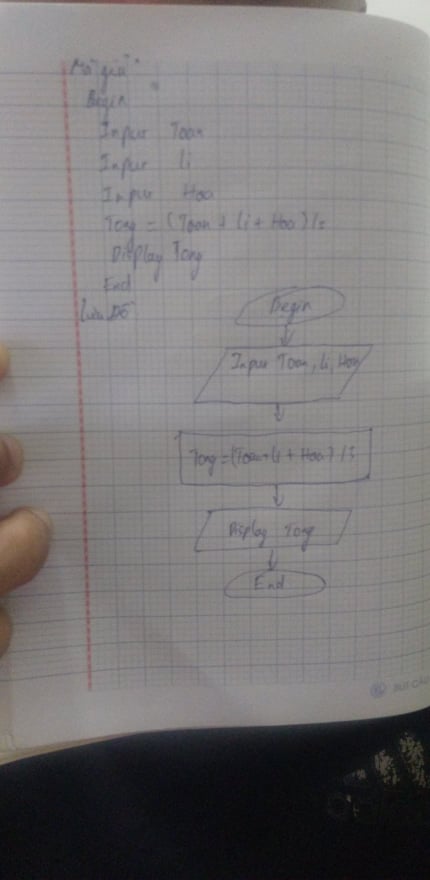 Mã giả
Begin
Input Toan
Input Li
Input Hoa
Tong = (Toan + Li + Hoa) / 3
Display Tong
End
Lưu Đồ
Begin
Input Toan, Li, Hoa
Tong = (Toan + Li + Hoa) / 3
Display Tong
End